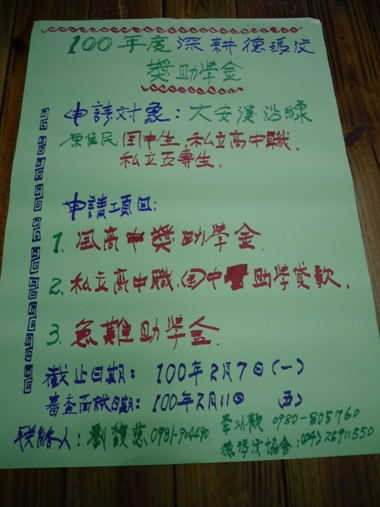 100年度深耕德瑪汶
獎助學金
申請対象：大安溪沿線
原住民國中生、私立高中職、
私立五專生.
申請項目：
1. 国高中獎助學金.
2. 私立高中職、国中助學貸款.
3. 急難助學金.
截止日期：100年2月7日(一)
審查面試日期：100年2月11日(五)
0980-805760
聯絡人：劉馥慈0981-904490
德瑪汶協會：(04)25911550